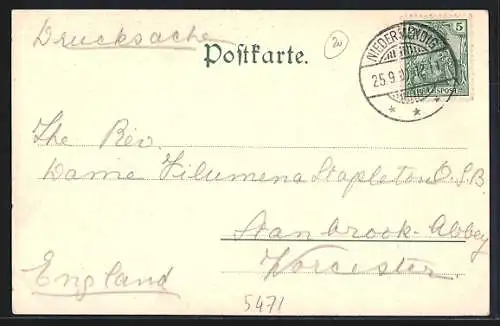 Drucksache
Postkarte.
20
5
NIEDERMENDIG
25.9. 12-1
REICHSPOST
The Rev.
Dame Filumena Stapleton O.S.B.
Stanbrook-Abbey
Worcester.
England
5471